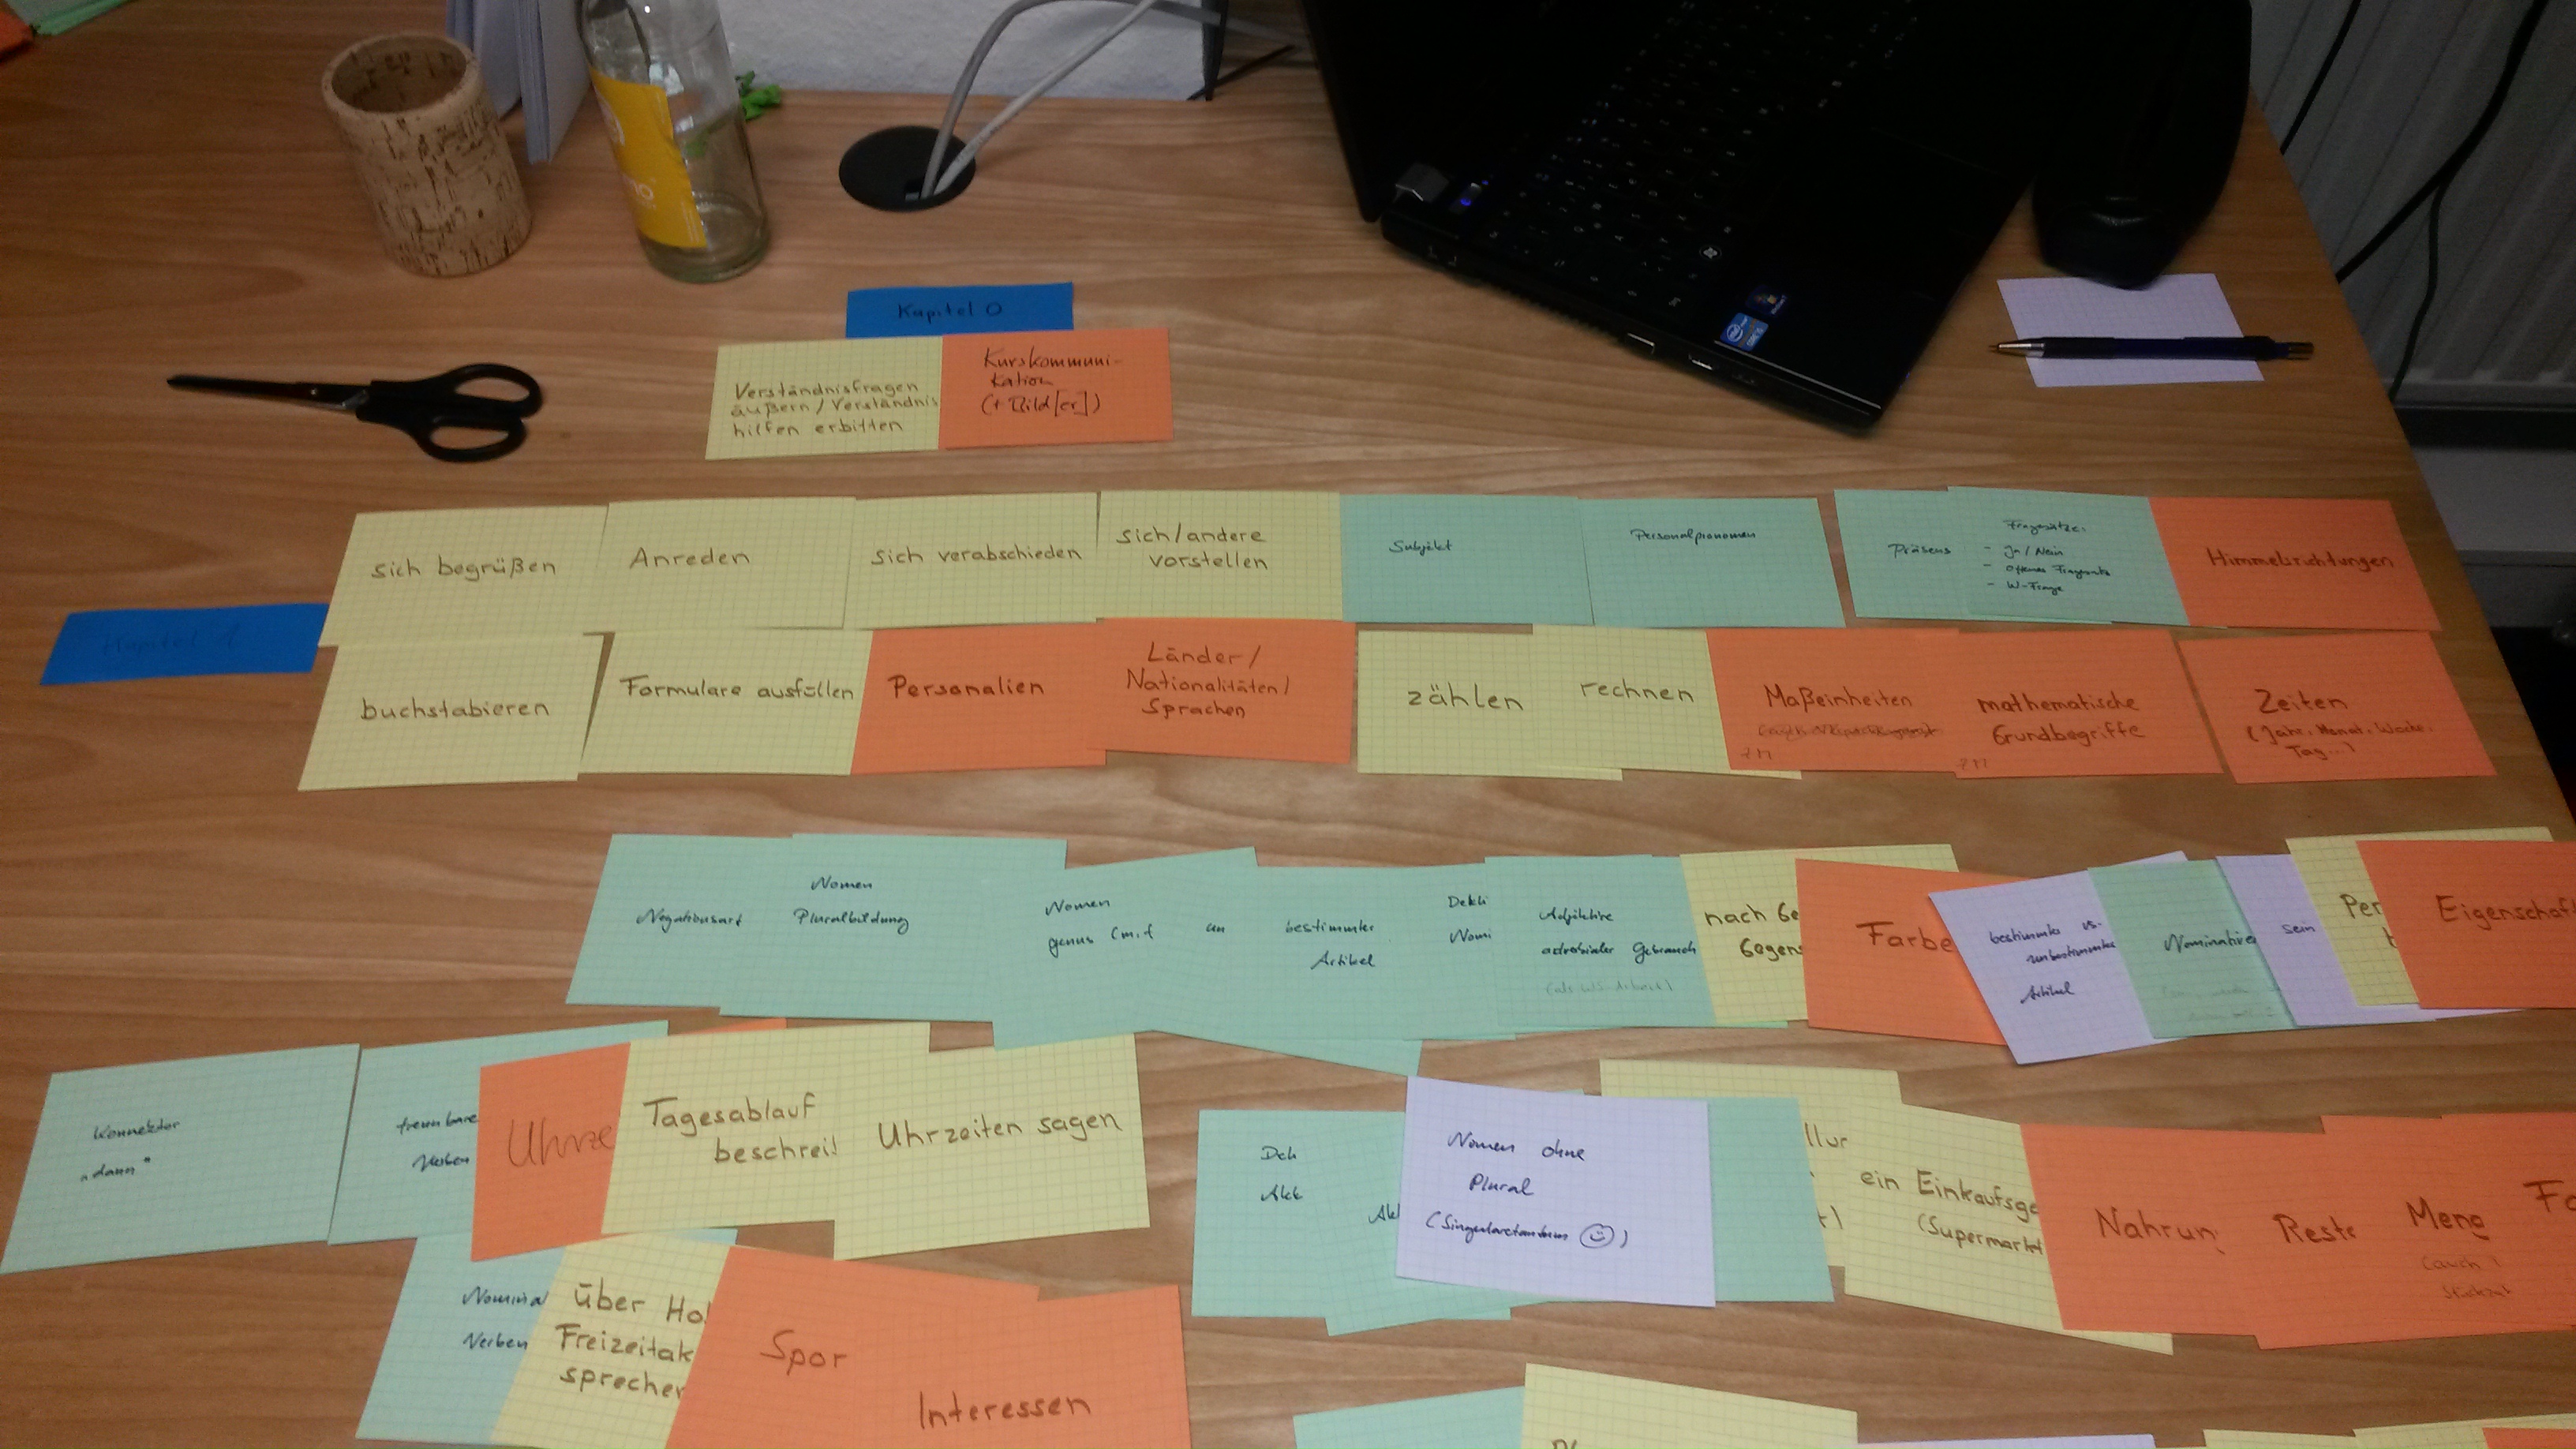 Kapitel 0
Verständnisfragen
äußern / Verständnis
hilfen erbitten
Kurskommuni-
kation
(+ Bild[er])
sich begrüßen
Anreden
sich verabschieden
sich/andere
vorstellen
Subjekt
Personalpronomen
Präsens
Fragesätze:
- Ja / Nein
- W-Frage
Himmelsrichtungen
Kapitel 1
buchstabieren
Formulare ausfüllen
Personalien
Länder /
Nationalitäten /
Sprachen
zählen
rechnen
Maßeinheiten
mathematische
Grundbegriffe
Zeiten
(Jahr, Monat, Woche,
Tag...)
Negationsart
Nomen
Pluralbildung
Nomen
genus (m, f
un
bestimmter
Artikel
Dekli
Nomi
Adjektive
Gebrauch
nach Ge
Gegens
Farbe
bestimmter vs.
unbestimmter
Artikel
Nominativ
sein
Per
Eigenschaf
Konnektor
"dann"
trennbare
Verben
Uhrze
Tagesablauf
beschrei
Uhrzeiten sagen
Dek
Akk
Akk
Nomen ohne
Plural
(Singularetantum ☺)
ein Einkaufsge
(Supermarkt
Nahrun
Reste
Meng
(auch
Nominal
Verben
über Ho
Freizeitak
sprechen
Spor
Interessen